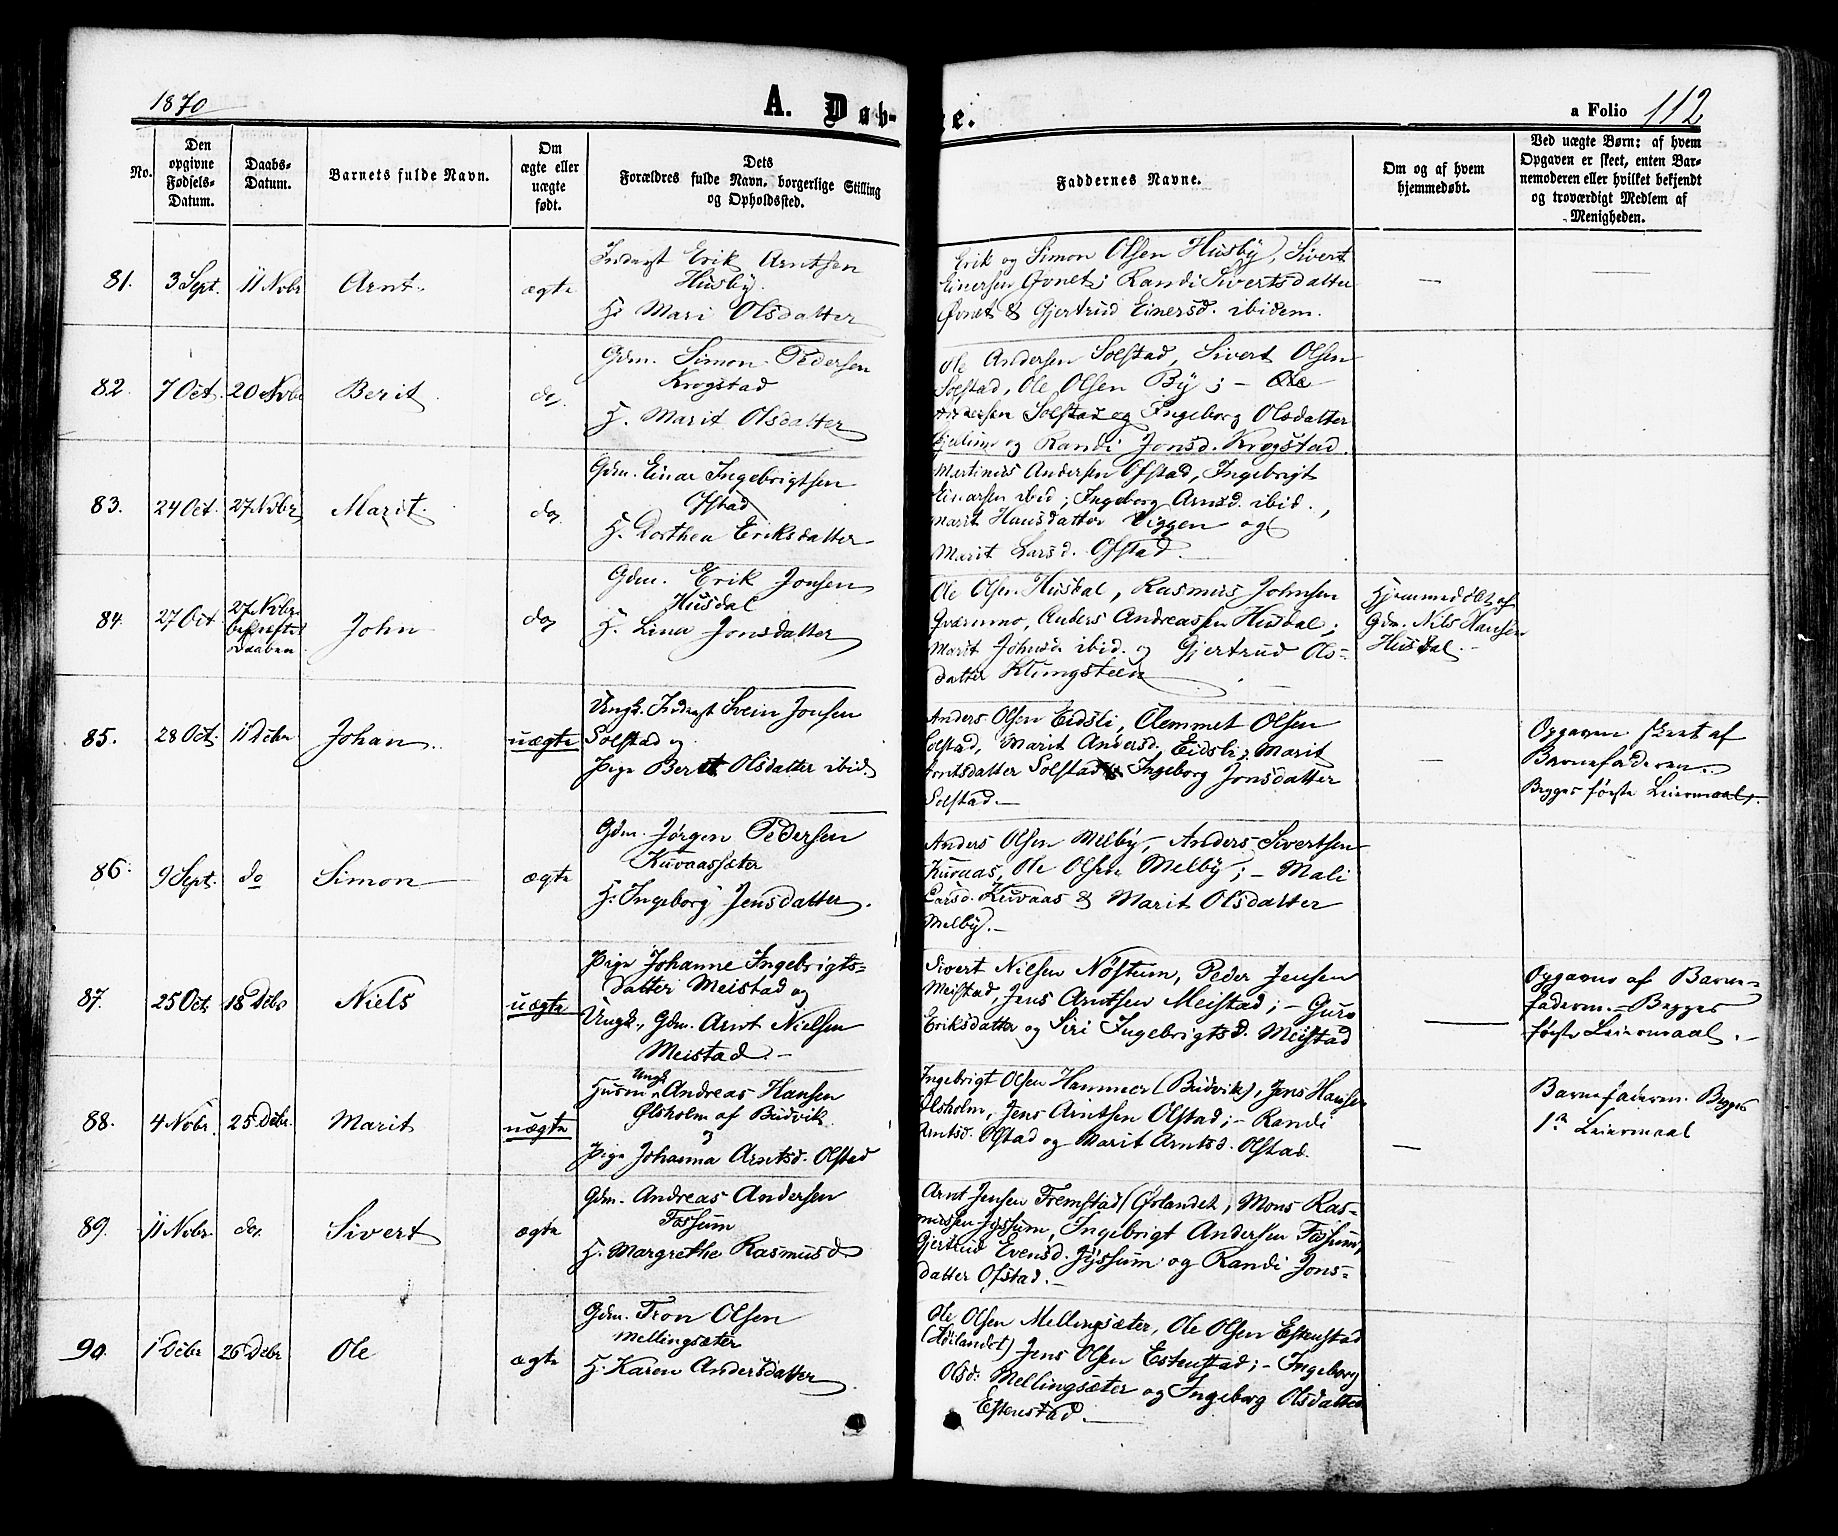 1870
A. Døb-
te.
a Folio 112
No.
Den
opgivne
Fødsels-
Datum.
Daabs-
Datum.
Barnets fulde Navn.
Om
ægte eller
uægte
født.
Dets
Forældres fulde Navn, borgerlige Stilling
og Opholdssted.
Faddernes Navne.
Om og af hvem
hjemmedøbt.
Ved uægte Børn: af hvem
Opgaven er skeet, enten Bar-
nemoderen eller hvilket bekjendt
og troværdigt Medlem af
Menigheden.
81. 3 Sept. 11 Nvbr Arnt. ægte
Inderst Erik Arntsen
Husby.
H. Mari Olsdatter
Erik og Simon Olsen Husby, Sivert
Einersen Øvnet; Randi Sivertsdatter
Øvnet & Gjertrud Einersd. ibidem.
82. 7 Oct. 20 Nvbr Berit do.
Gdm. Simon Pedersen
Krogstad
H. Marit Olsdatter
Ole Andersen Solstad, Sivert Olsen
Solstad, Ole Olsen By; - Ole
Andersen Solstad og Ingeborg Olsdatter
og Randi Jonsd. Krogstad.
83. 24 Oct. 27 Nvbr Marit. do.
Gdm. Einar Ingebrigtsen
Ofstad
H. Dorthea Eriksdatter
Martinus Andersen Ofstad, Ingebrigt
Einarsen ibid; Ingeborg Arnsd. ibid.,
Marit Hansdatter Viggen og
Marit Larsd. Ofstad.
84. 27 Oct 27 Nvbr
bekræftet
Daaben
John do.
Gdm. Erik Jonsen
Husdal
H. Lina Jonsdatter
Ole Olsen Husdal, Rasmus Johnsen
Kværnmo, Anders Andreassen Husdal;
Marit Johnsd. ibid. og Gjertrud Ols-
datter Klungsteen
Hjemmedøbt af
Gdm. Nils Hansen
Husdal.
85. 28 Oct. 11 Debr Johan uægte
Ungk. Inderst Svein Jonsen
Solstad og
Pige Berit Olsdatter ibid.
Anders Olsen Eidsli, Clemmet Olsen
Solstad, Marit Andersd. Eidsli, Marit
Arntsdatter Solstad Ingeborg Jonsdatter
Solstad.
Opgaven skeet af
Barnefaderen.
Begges første Leiermaal.
86. 9 Sept. do Simon ægte
Gdm. Jørgen Pedersen
Kuvaassæter
H. Ingeborg Jensdatter.
Anders Olsen Melby, Anders Sivertsen
Kuvaas, Ole Olsen Melby; - Mali
Larsd. Kuvaas & Marit Olsdatter
Melby.
87. 25 Oct. 18 Debr Niels uægte
Pige Johanne Ingebrigts-
datter Meistad og
Ungk., Gdm. Arnt Nielsen
Meistad.
Sivert Nielsen Nøstum, Peder Jensen
Meistad, Jens Arntsen Meistad; - Guro
Eriksdatter og Siri Ingebrigtsd. Meistad
Opgavns af Barne-
faderen. - Begges
første Leiermaal.
88. 4 Nvbr. 25 Debr. Marit uægte
Ungk
Husm. Andreas Hansen
Olsholm af Budvik
og
Pige Johanna Arntsd. Olstad
Ingebrigt Olsen Hammer (Budvik), Jens Hansen
Olsholm, Jens Arntsen Olstad; - Randi
Arntsd. Olstad og Marit Arntsd. Olstad.
Barnefaderen. Begges
1ste Leiermaal
89. 11 Nvbr do. Sivert ægte
Gdm. Andreas Andersen
Fossum
H. Margrethe Rasmusd
Arnt Jensen Fremstad (Ørlandet, Mons Ras-
mussen Jyssum, Ingebrigt Andersen Fossum,
Gjertrud Evensd. Jyssum og Randi Jons-
datter Ofstad.
90. 1 Debr 26 Debr Ole ægte
Gdm. Tron Olsen
Mellingsæter
H. Karen Andersdatter
Ole Olsen Mellingsæter, Ole Olsen Estenstad
(Høilandet) Jens Olsen Estenstad; - Ingeborg
Olsd. Mellingsæter og Ingeborg Olsdatter
Estenstad.